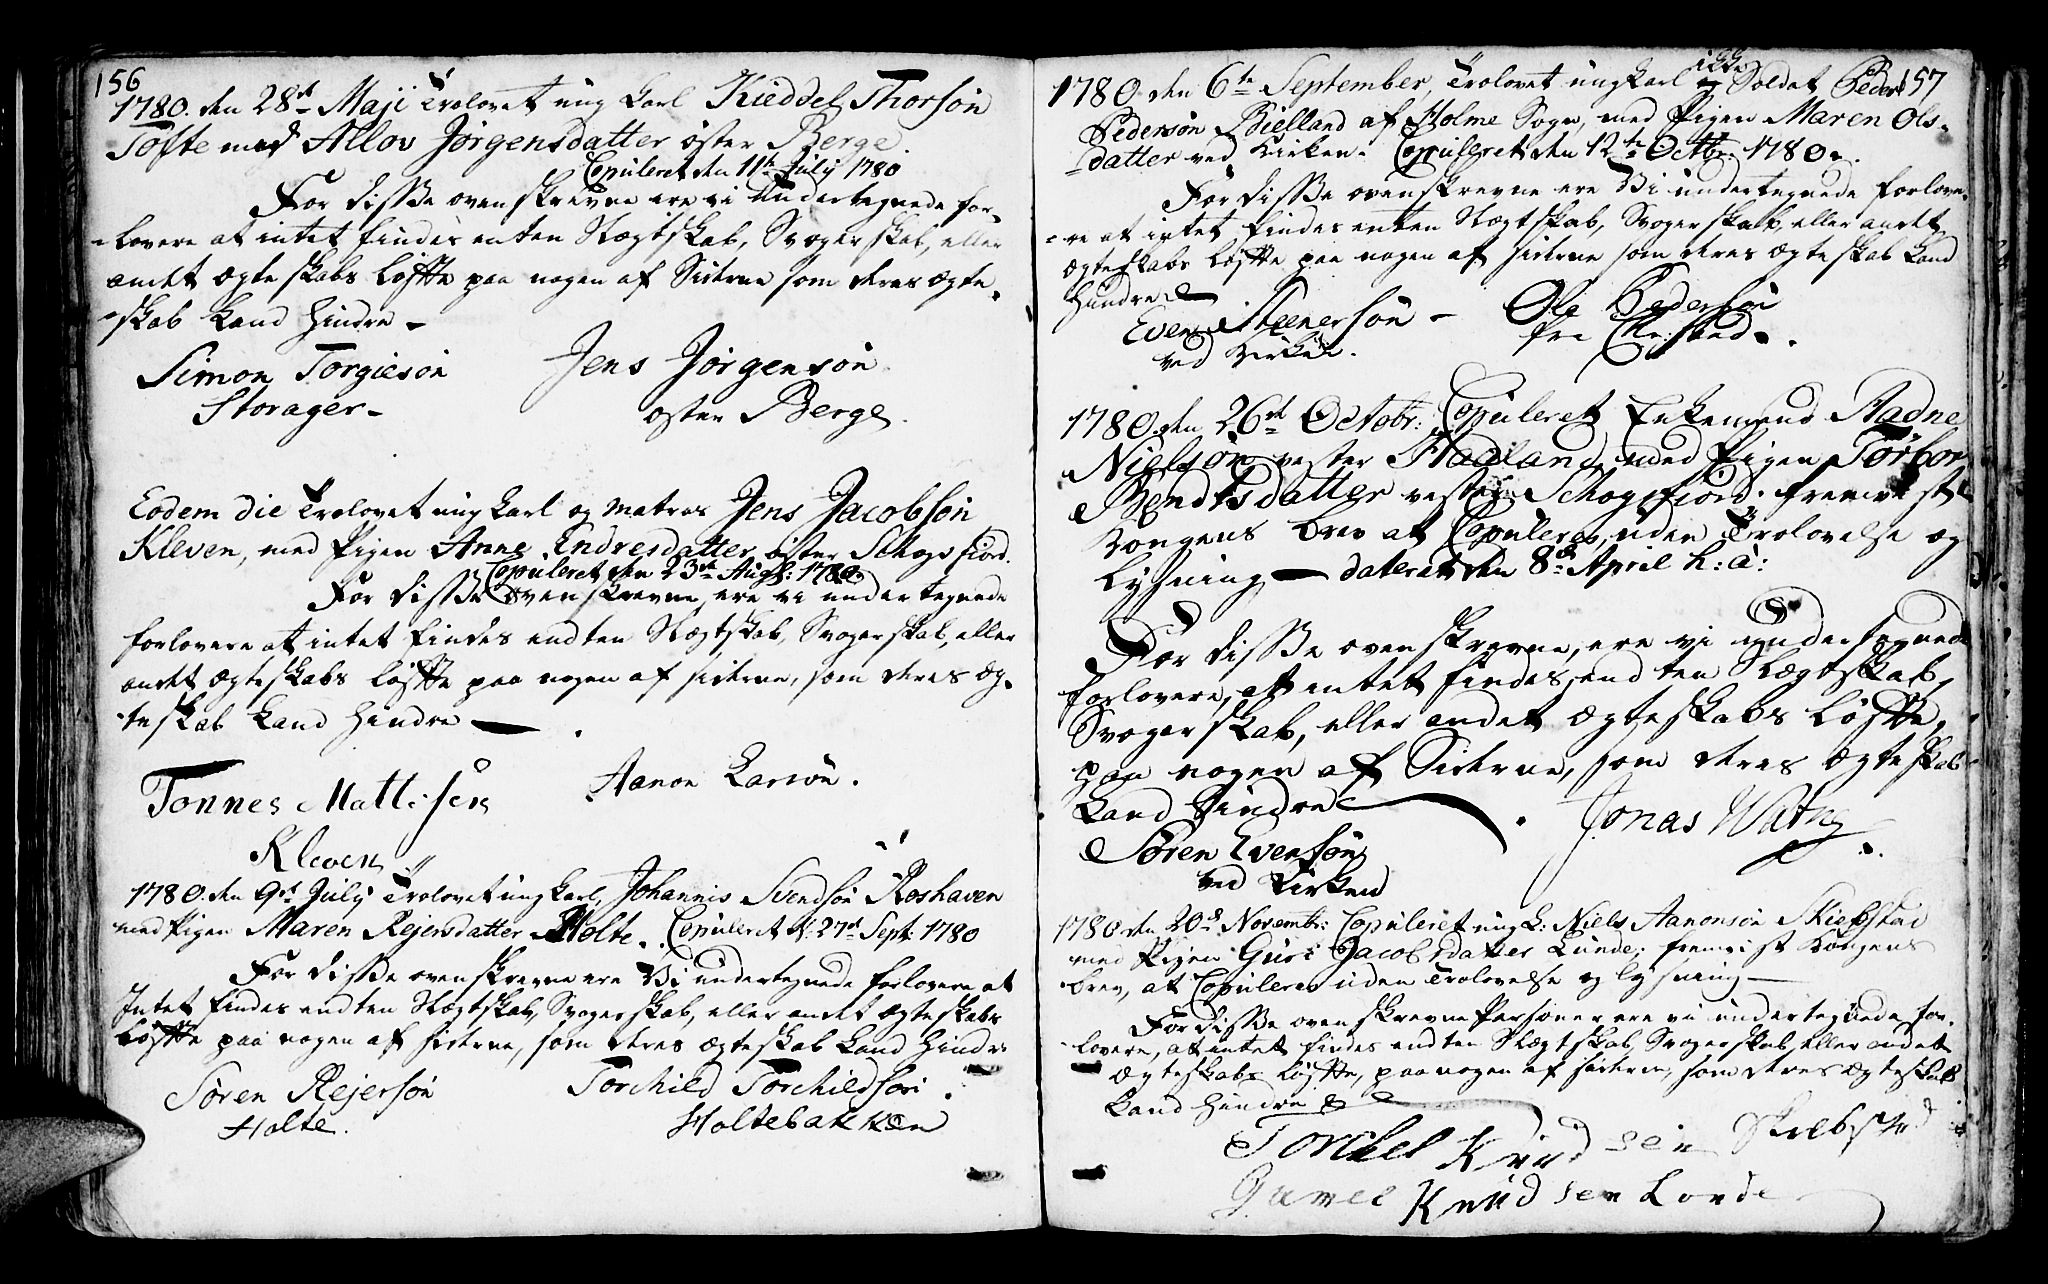 156
1780. den 28de Maji Trolovet ung Carl Kieddel Thorsøn
Tofte med Allov Jørgensdatter öster Berge.
Copuleret den 11te July 1780
For disse ovenskrevne ere vi Undertegnede for-
-lovere at intet findes enten Slegtskab, Svogerskab, eller
andet Ægteskabs løfte paa nogen af Siderne som deres Ægte-
-skab kand hindre -
Simon Torgiesön
Storager -
Jens Jørgensøn
öster Berge.
Eodem die Trolovet ungkarl og Matros Jens Jacobsøn
Kleven, med Pigen Anne Endresdatter öster Schogsfiord.
Copuleret den 23de Aug: 1780.
For disse ovenskrevne, ere vi undertegnede
forlovere at intet findes endten Slegtskab, Svogerskab, eller
andet Ægteskabs løfte paa nogen af siderne, som deres Æg-
-teskab kand hindre -
Tønnes Mattisen
Kleven
Aanon Larsön.
1780. den 9de July Trolovet ungkarl, Johannis Svendsøn Roshaven
med Pigen Maren Rejersdatter Holte. Copuleret d. 27de Sept. 1780
For disse ovenskrevne ere Vi undertegnede forlovere at
Intet findes endten Slegtskab, Svogerskab, eller andet Ægteskabs
løfte paa nogen af siderne, som deres Ægteskab kand hindre
Søren Rejersøn
Holte.
Torchild Torchildsøn
Holtebakken
157
1780. den 6te September, Trolovet ungkarl Soldat Peder
Pedersøn Bielland af Holme Sogn, med Pigen Maren Ols-
-datter ved Kirken. Copuleret den 12te Octbr. 1780.
For disse ovenskrevne ere Vi undertegnede forlove-
-re at intet findes enten Slægtskab, Svogerskab, eller andet
Ægteskabs løfte paa nogen af siderne som deres Ægteskab kand
hindre
Even Steenersøn -
ved Kirken.
Ole Pedersøn
fra Chr:sand.
1780. den 26de Octobr: Copuleret Enkemand Aadne
Nielsøn vester Haaland, med Pigen Torbor
Bendtsdatter vester Schogsfiord. fremviste
Kongens brev at Copuleres, uden Trolovelse og
lysning - dateret den 8de April h: a:
For disse ovenskrevne, ere vi undertegnede
forlovere, at intet findes, endten Slægtskab,
Svogerskab, eller andet Ægteskabs løfte,
paa nogen af Siderne, som deres Ægteskab
kand hindre
Søren Evensøn
ved Kirken
Jonas Watne
1780 den 20de Novembr: Copuleret ung K: Niels Aanonsøn Skiebstad
med Pigen Guri Jacobsdatter Lunde; fremvist Kongens
brev, at Copuleres uden Trolovelse og lysning -
For disse ovenskrevne Personer ere vi undertegnede for-
-lovere, at intet findes endten Slegtskab, Svogerskab, eller andet
Ægteskabs løfte, paa nogen af siderne, som deres Ægteskab
kand hindre
Torchel Knudsen Skiebstad
Gunvel Knudsen Londe